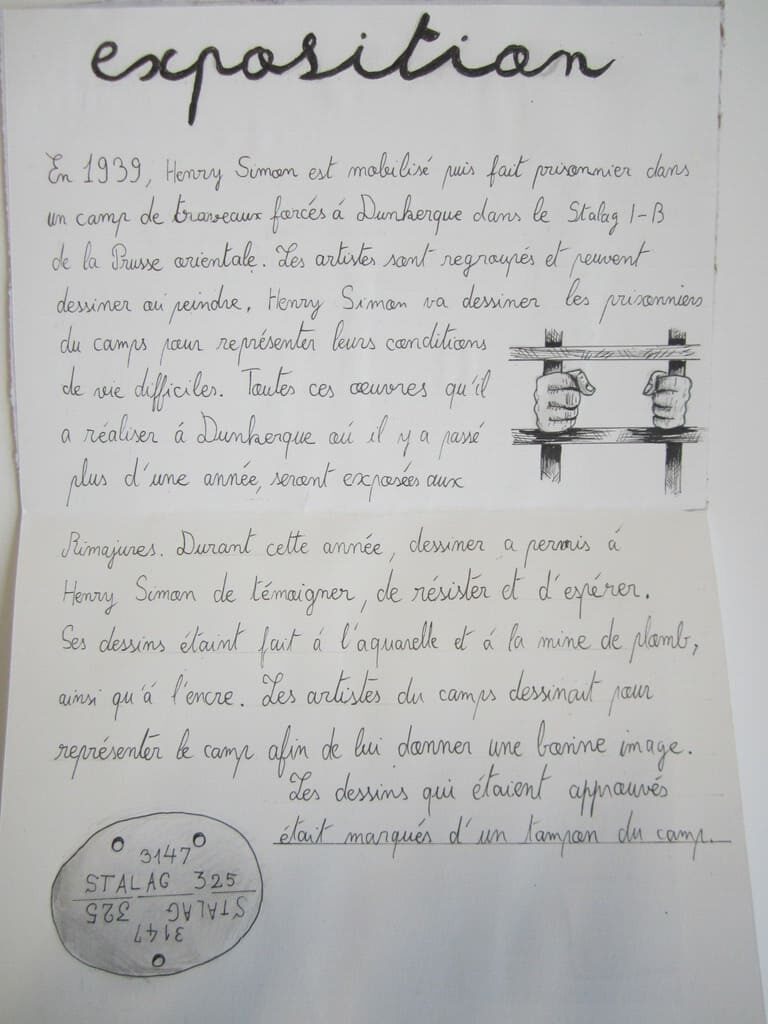 exposition
En 1939, Henry Simon est mobilisé puis fait prisonnier dans
un camp de traveaux forcés á Dunkerque dans le Stalag I-B
de la Prusse orientale. Les artistes sont regroupés et peuvent
dessiner ou peindre. Henry Simon va dessiner les prisonniers
du camps pour représenter leurs conditions
de vie difficiles. Toutes ces œuvres qu'il
a réaliser á Dunkerque oú il y a passé
plus d'une année, seront exposées aux
Rimajures. Durant cette année, dessiner a permis á
Henry Simon de témoigner, de résister et d'espérer.
Ses dessins étaint fait á l'aquarelle et á la mine de plomb,
ainsi qu'á l'encre. Les artistes du camps dessinait pour
représenter le camp afin de lui donner une bonne image.
Les dessins qui étaient approuvés
était marqués d'un tampon du camp.
3147
STALAG 325
STALAG 325
3147